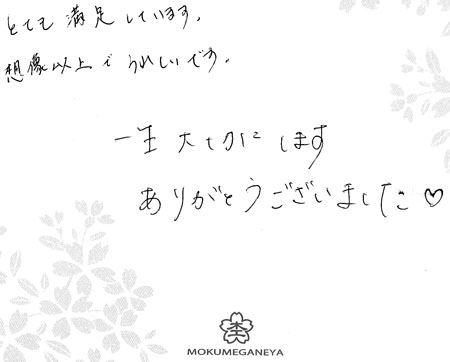 とても満足しています。
想像以上でうれしいです。
一生大切にします
ありがとうございました♡
MOKUMEGANEYA